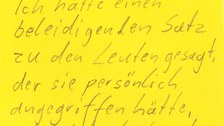 Ich hätte einen
beleidigenden Satz
zu den Leuten gesagt,
der sie persönlich
angegriffen hätte,